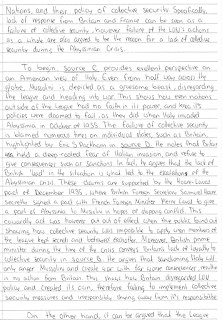 Nations, and their policy of collective security. Specifically,
lack of response from Britain and France can be seen as a
failure of collective security, however, failure of the LON's actions
as a whole are also argued to be the reason for a lack of collective
security during the Abyssinian Crisis.
To begin, Source C provides excellent perspective on
an American view of Italy. Even from half way across the
globe, Mussolini is depicted as a gruesome beast, disregarding
the treaties and heading into war. This shows how even nations
outside of the League had no faith in its power, and knew its
policies were doomed to fail, as they did when Italy invaded
Abyssinia in October of 1935. The failure of collective security
is blamed numerous times on individual states, such as Britain,
highlighted by Eric S. Packham in source D. He notes that Britain
had a deep-seated fear of Italian invasion, and refuse to
give consequences such as sanctions. In fact, he argues that the lack of
British "lead" in the situation is what led to the escalation of the
Abyssinian Crisis. These claims are supported by the Hoare-Laval
pact of December 1935, where British Foreign Secretary Samuel Hoare
secretly signed a pact with French Foreign Minister Pierre Laval to give
a part of Abyssinia to Mussolini in hopes of avoiding conflict. This
cowardly act was however out of effect when the public found out
showing how collective security was impossible to apply when members of
the league kept secrets and behaved
prime minister during the time of the crisis conveys Britain's lack of
collective security in source B. He argues that sanctioning Italy will
only anger Mussolini and create a war with far worse consequences, resulting
in no action from Britain. This shows how Britain disregarded LON
policy and created its own, therefore failing to implement collective
security measures and irresponsibly shying away from its responsibilities
On the other hand, it can be argued that the League